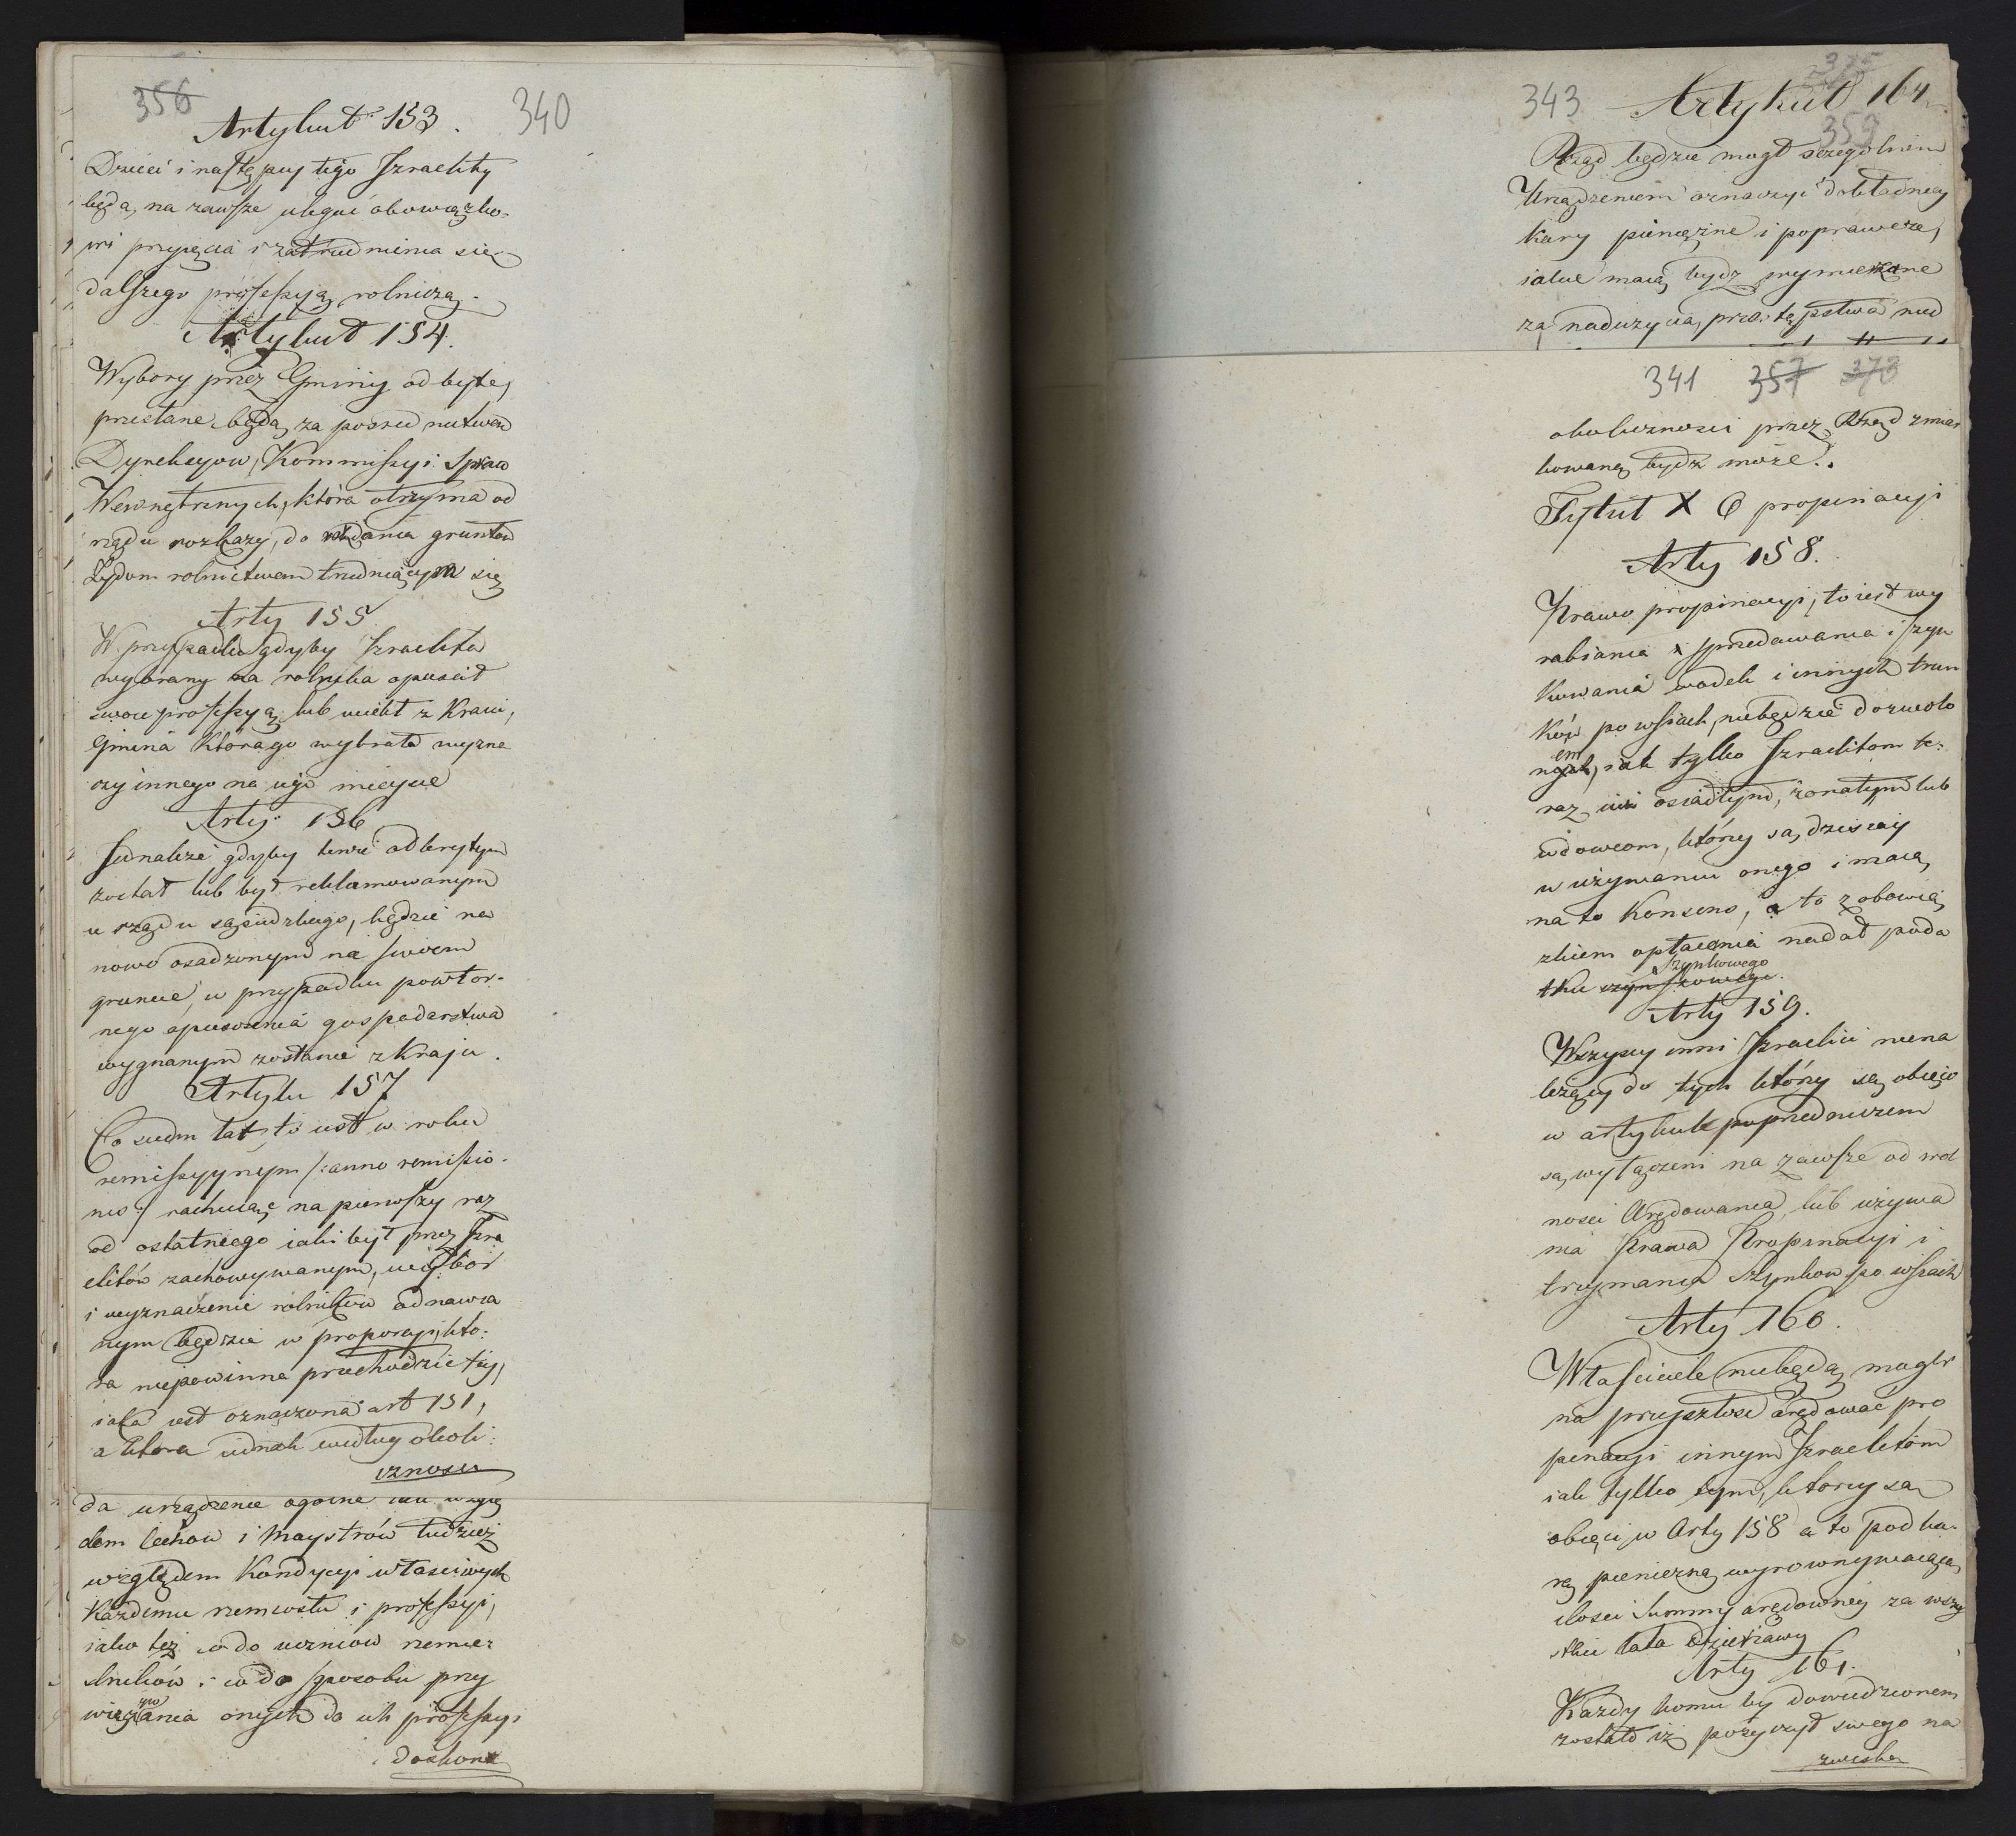 356
340
Artykuł 153.
Dzieci i następcy tego Izraelity
będą na zawsze ulegać obowiązko-
wi przyięcia i zatrudnienia się
dalszego professyą rolniczą.
Artykuł 154.
Wybory przez Gminy odbyte,
przesłane będą za posrednictwem
Dyrekcyow, Kommissyi Spraw
Wewnętrznych, która otrzyma od
rządu rozkazy, do oddania gruntów
Żydom rolnictwem trudniącym się
Arty 155
W przypadku gdyby Izraelita
wybrany na rolnika opuscił
swoie professyą lub uciekł z Kraiu,
Gmina którago wybrała wyzna
czy innego na iego mieysce
Arty. 156
Jednakże gdyby tenże odkrytym
został lub był reklamowanym
u rządu sąsiedzkiego, będzie na
nowo osadzonym na swoiem
gruncie, w przypadku powtor-
nego opuszczenia gospodarstwa
wygnanym zostanie z Kraju.
Artyku 157
Co siedm lat, to iest w roku
remissyynym /: anno remissio-
nis :/ rachuiąc na pierwszy raz
od ostatniego iaki był przez Izra
elitów zachowywanym, wybór
i wyznaczenie rolników odnawia
nym będzie w proporcyi, któ:
ra niepowinna przechodzić tey,
iaka iest oznaczona art 151,
a która iednak według okoli:
cznosci
da urządzenie ogolne
dem Cechow i Maystrów tudzież
względem Kondycyi własciwych
Każdemu rzemiosłu i professyi,
iako też co do uczniow rzemie-
slników i co do sposobu przy
zw
wiązania onych do ich professyi
doskona
343
375
Artykuł 164
359
Rząd będzie mogł szczegolnem
Urządzeniem oznaczyć dokładniey
Kary pieniężne i poprawcze,
iakie maią bydz wymierzane
za nadużycia, przestępstwa nad
341 357 373
okoliczności przez Rząd zmiar
kowaną bydz może.
Tytuł X O propinacyi
Arty 158.
Prawo propinacyi, to iest wy
rabiania i sprzedawania i szyn
kowania wodek i innych trun
ków po wsiach, niebędzie dozwolo
em
nych, iak tylko Izraelitom te:
raz iuż osiadłym, żonatym lub
wdowcom, którzy są dzisiay
w używaniu onego i maią
na to Konsens, a to z obowią
zkiem opłacania nadal poda
szynkowego
tku czynszowego.
Arty 159.
Wszyscy inni Izraelici niena
leżący do tych którzy są obięci
w artykule poprzedniczem
są wyłączeni na zawsze od wol
nosci Arędowania, lub używa
nia Prawa Propinacyi i
trzymania Szynkow po wsiach
Arty 160.
Właściciele niebędą mogli
na przyszłość arędować pro
pinacyi innym Izraelitom
iak tylko tym, którzy są
obięci w Arty 158 a to pod ka-
rą pieniezną wyrownywaiącą
ilosci Summy arędowney za wszy
stkie lata dzierżawy
Arty 161.
Każdy komu by dowiedzionem
zostało iż pożyczył swego na
zwiska